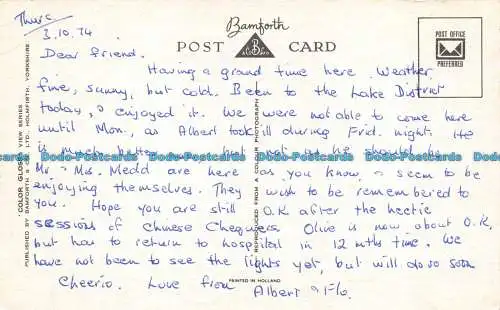 Thurs
3.10.74
Bamforth
POST CARD
POST OFFICE
PREFERRED
Dear friend.
Having a grand time here. Weather
fine, sunny, but cold. Been to the Lake District
today, & enjoyed it. We were not able to come here
until Mon, as Albert took ill during Frid. night. He
is much better but not as he should be
Mr. & Mrs. Medd are here as you know, & seem to be
enjoying themselves. They wish to be remembered to
you. Hope you are still O.K after the hectic
sessions of Chinese Chequers Olive is now about O.K.
but has to return to hospital in 12 mths time. We
have not been to see the lights yet, but will do so soon
Cheerio. Love from Albert & Flo.
"COLOR GLOSS" VIEW SERIES
PUBLISHED BY BAMFORTH & CO. LTD., HOLMFIRTH, YORKSHIRE
REPRODUCED FROM A COLOUR PHOTOGRAPH
PRINTED IN HOLLAND
Dodo-Postcards Dodo-Postcards Dodo-Postcards Dodo-Postcards